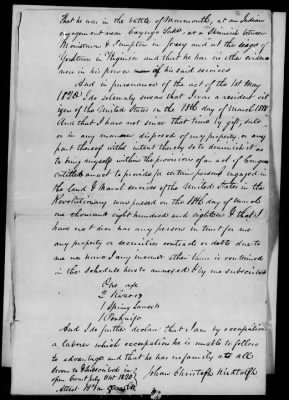 That he was in the battle of Monmouth, at an Indian
engagement near Cayuga Lake, at a Skirmish between
Ministown & Trempton in Jersey and at the Seage of
Yorktown in Virginia and that he has no other eviden
nce in his power of his said services
And in pursuance of the act of the 1st May
1820 I do solemnly swear that I was a resident cit
izen of the United States on the 18th day of March 1818
And that I have not since that time by gift, sale
or in any manner disposed of my property, or any
part thereof with intent thereby so to diminish it as
to bring myself within the provisions of an act of Congress
entitled an act to provide for certain persons engaged in
the land & Naval services of the United States in the
Revolutionary war passed on the 18th day of March
one thousand eight hundred and eighteen & that I
have not nor has any person in trust for me
any property or securities contracts or debts due to
me nor have I any income other than is contained
in the schedule hereto annexed & by me subscribed
One axe
2 Razors
1 Spring Lancet
1 Penknife
And I do further declare that I am by occupation
a laborer which occupation he is unable to follow
to advantage and that he has no family at all
Sworn to & subscribed in
open Court July Oct 1820
Attest Wm
Johann Christoph